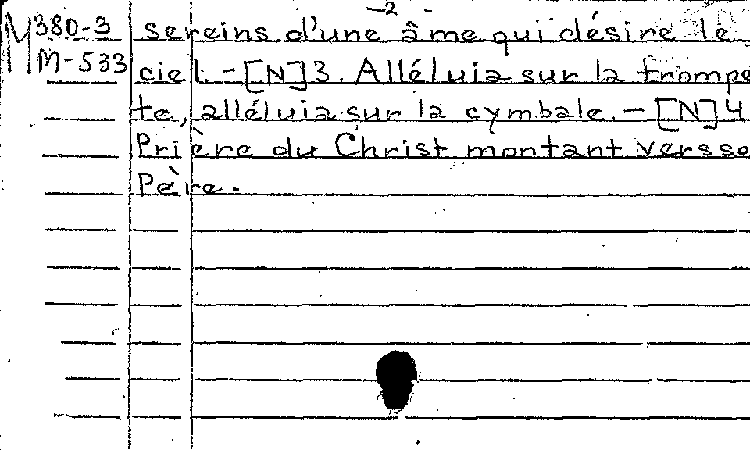 -2-
M 380-3 sereins d'une âme qui désire le
M-533 ciel. - [N] 3. Alléluia sur la trompe
te, alléluia sur la cymbale. - [N] 4
Prière du Christ montant vers so
Père.